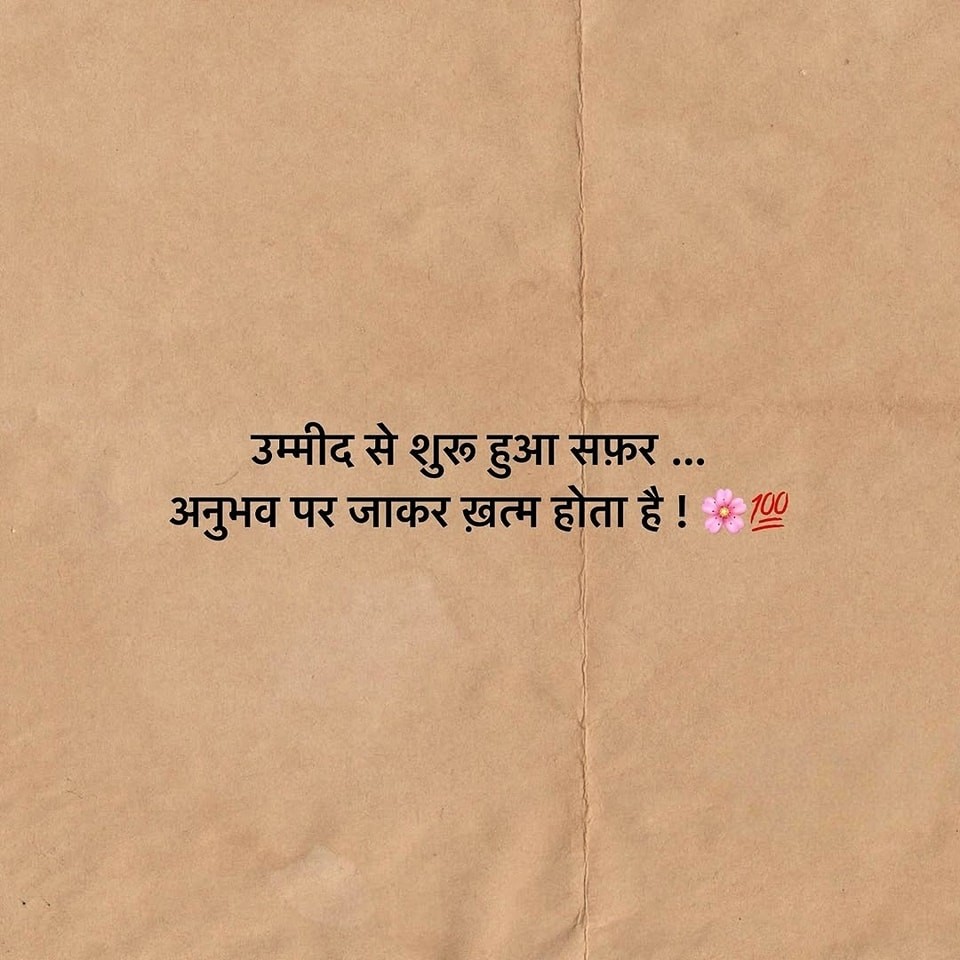 उम्मीद से शुरू हुआ सफ़र ...
अनुभव पर जाकर ख़त्म होता है ! 🌸💯